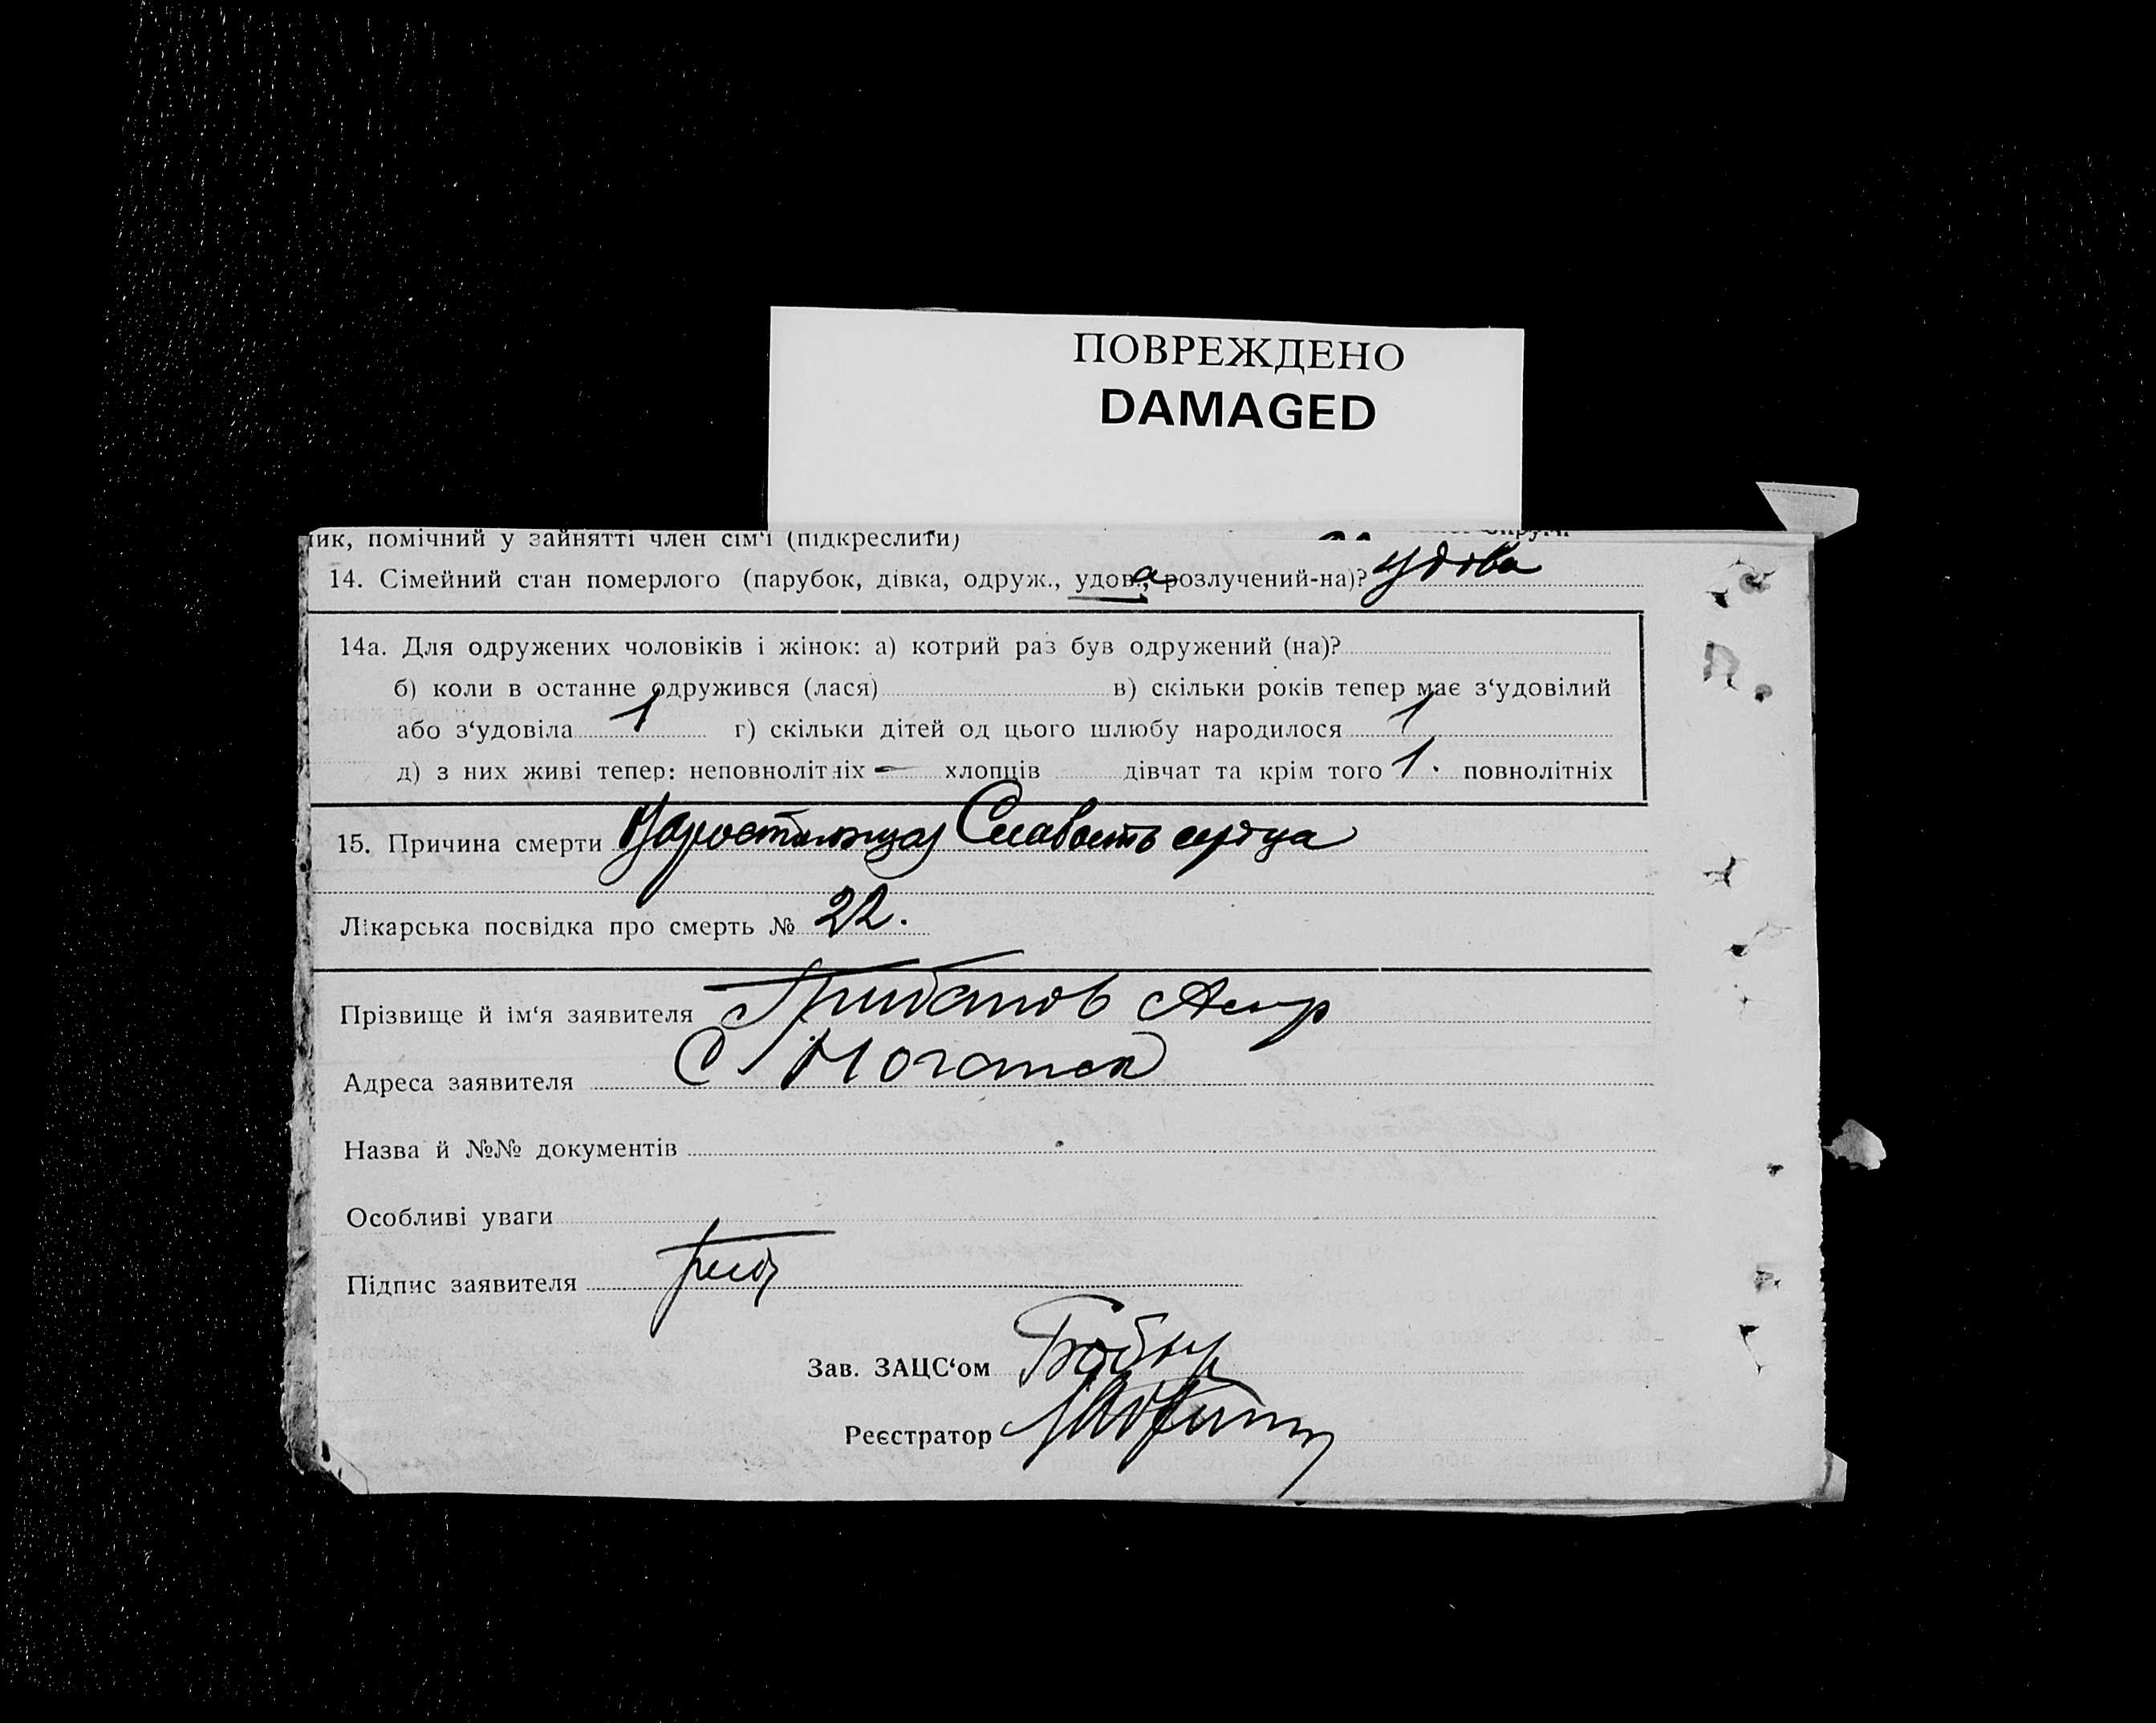 ПОВРЕЖДЕНО
DAMAGED
ик, помічний у зайнятті член сім'ї (підкреслити)
14. Сімейний стан померлого (парубок, дівка, одруж., удова, розлучений-на)? Удова
14а. Для одружених чоловіків і жінок: а) котрий раз був одружений (на)?
б) коли в останнє одружився (лася) в) скільки років тепер має з‘удовілий
або з‘удовіла 1 г) скільки дітей од цього шлюбу народилося 1
д) з них живі тепер: неповнолітніх — хлопців дівчат та крім того 1. повнолітніх
15. Причина смерти Слабость сердца
Лікарська посвідка про смерть № 22.
Прізвище й ім‘я заявителя
Адреса заявителя С Ногайск
Назва й №№ документів
Особливі уваги
Підпис заявителя
Зав. ЗАЦС‘ом
Реєстратор